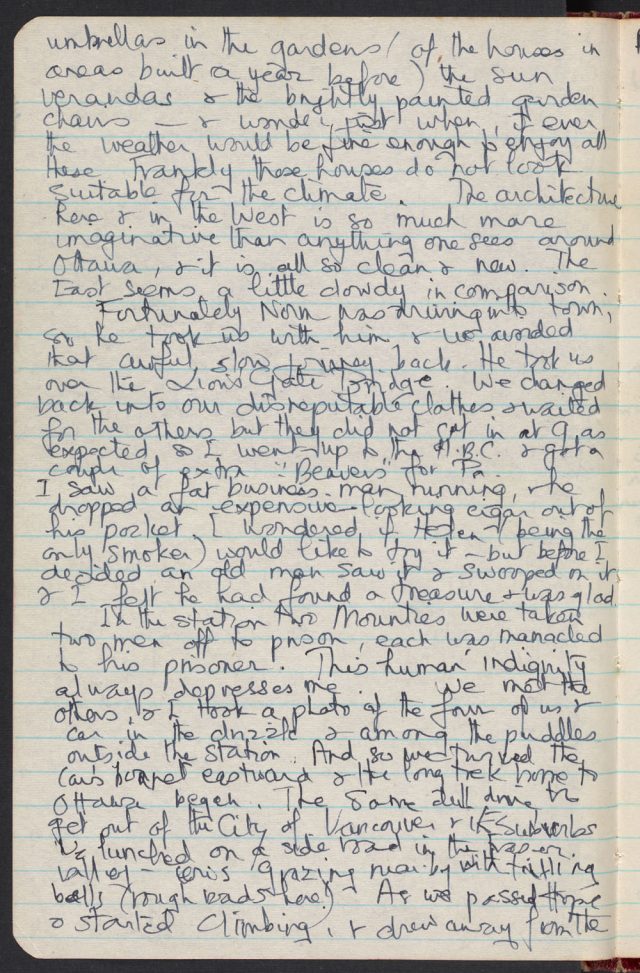 umbrellas in the gardens (of the houses in
areas built a year before) the sun
verandas & the brightly painted garden
chairs — & wonder just when, if ever
the weather would be fine enough to enjoy all
these. Frankly these houses do not look
suitable for the climate. The architecture
here & in the West is so much more
imaginative than anything one sees around
Ottawa, & it is all so clean & new. The
East seems a little dowdy in comparison.
Fortunately Norm was driving into town,
so he took us with him & we avoided
that awful slow journey back. He took us
over the Lions Gate Bridge. We changed
back into our disreputable clothes & waited
for the others but they did not get in at 9 as
expected so I went up to the H.B.C. & got a
couple of extra "Beavers" for
I saw a fat business man running, & he
dropped an expensive looking cigar out of
his pocket. I wondered if Helen (being the
only smoker) would like to try it – but before I
decided an old man saw it & swooped on it
& I felt he had found a treasure & was glad.
In the station two Mounties were taking
two men off to prison, each was manacled
to his prisoner. This human indignity
always depresses me. We met the
others, & I took a photo of the four of us &
car in the drizzle & among the puddles
outside the station. And so we turned the
car's bonnet eastward & the long trek home to
Ottawa began. The same dull drive to
get out of the City of Vancouver & its suburbs
We lunched on a side road in the Fraser
valley – cows grazing nearby with tinkling
bells (rough roads here!) As we passed Hope
& started climbing, & drew away from the